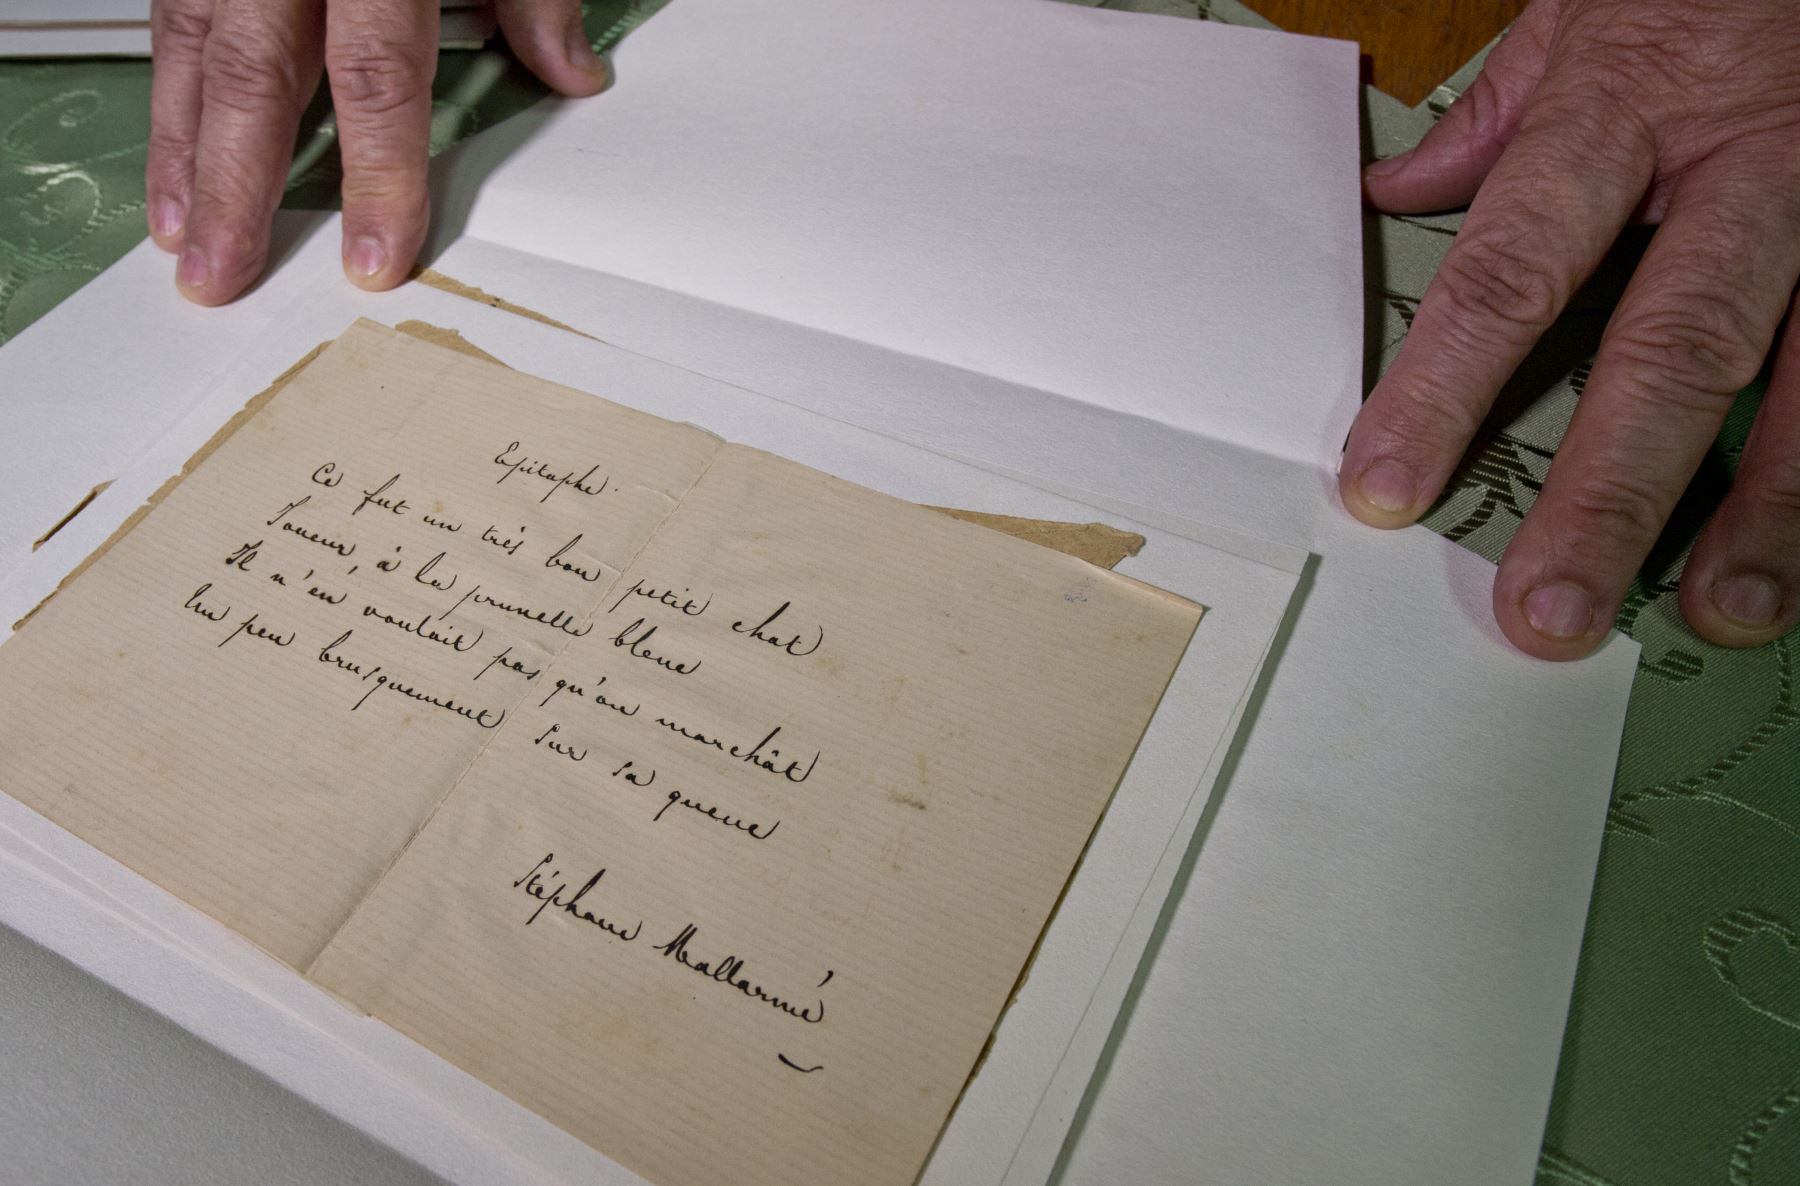 Epitaphe.
Ce fut un très bon petit chat
Joueur, à la prunelle bleue
Il n'en voulait pas qu'on marchât
Un peu brusquement sur sa queue
Stéphane Mallarmé